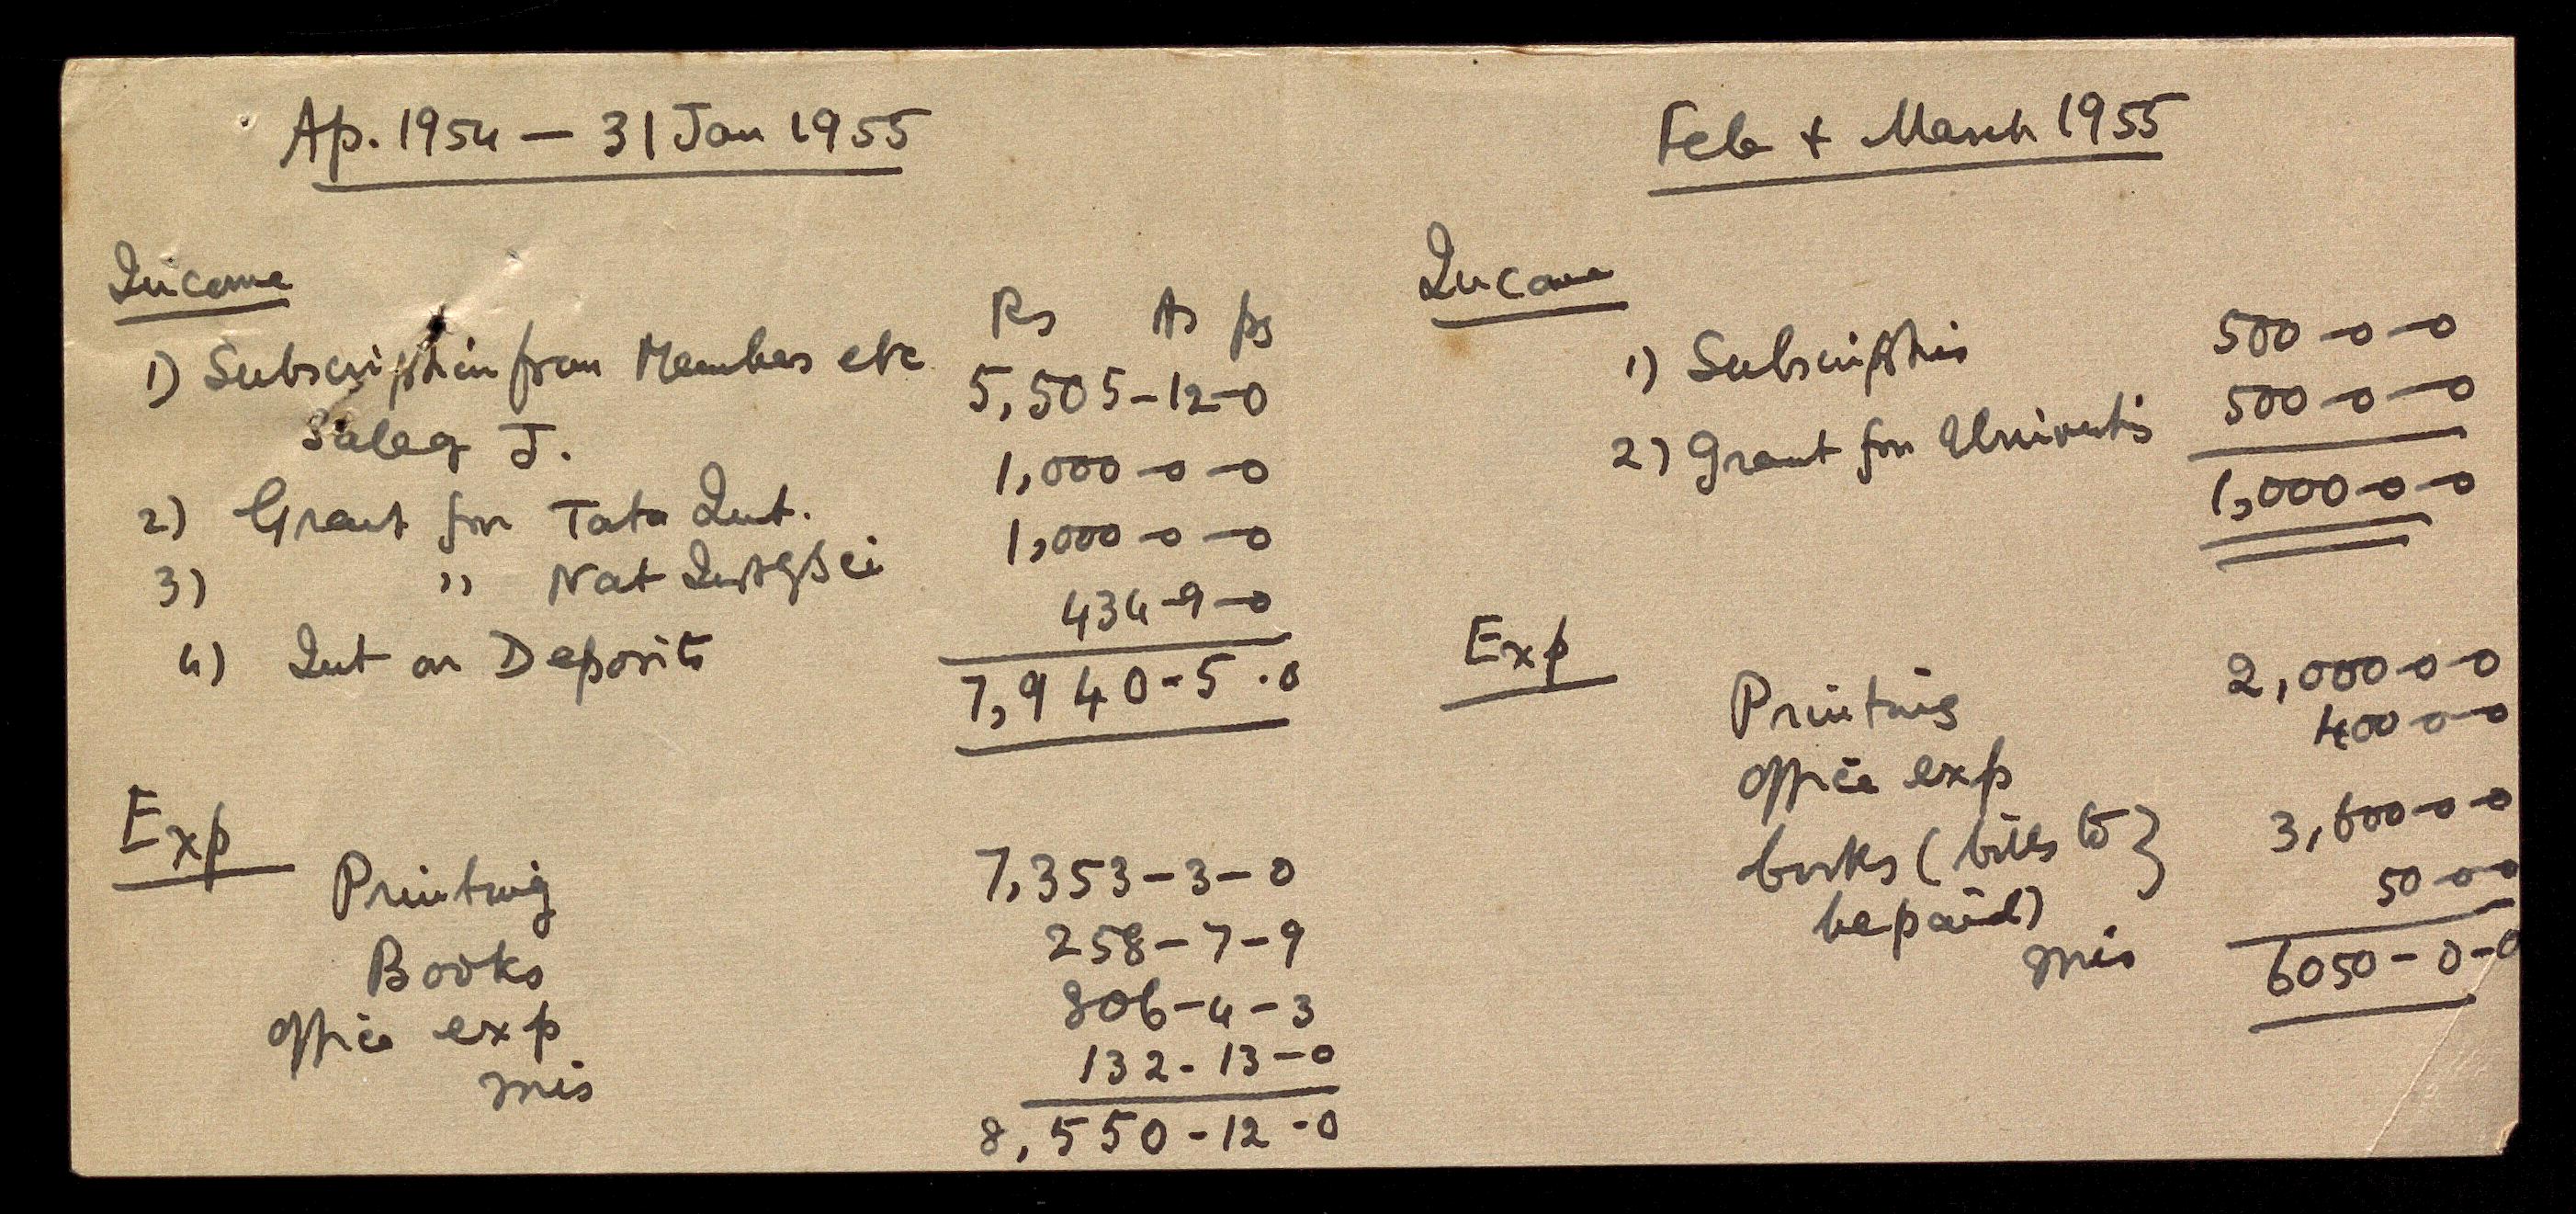 Ap. 1954 — 31 Jan 1955
Income
Rs As ps
1) Subscription from Members etc 5,505-12-0
Saleg J.
2) Grant for Tata Int. 1,000-0-0
3) " Nat Inst of Sci 1,000-0-0
4) Int on Deposits 434-9-0
7,940-5-0
Exp
Printing 7,353-3-0
Books 258-7-9
office exp 806-4-3
mis 132-13-0
8,550-12-0
Feb + March 1955
Income
1) Subscriptions 500-0-0
2) Grant for 500-0-0
1,000-0-0
Exp
Printing 2,000-0-0
office exp 400-0-0
books (bills to } 3,600-0-0
be paid)
mis 50-0-0
6050-0-0